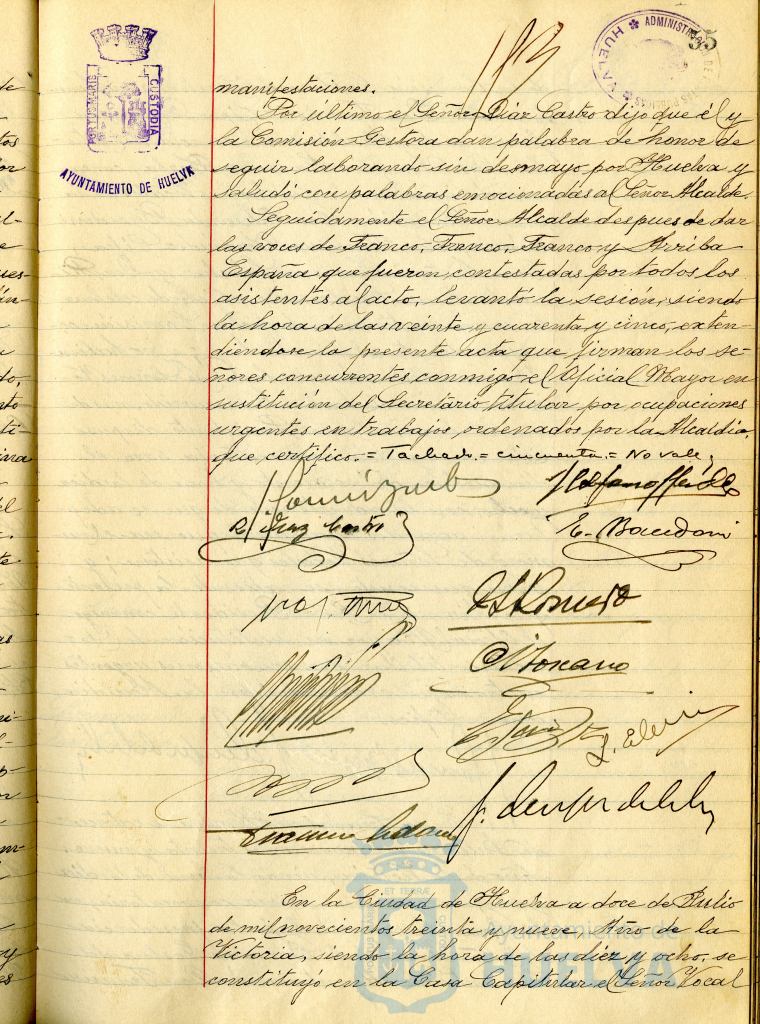 35
PORTUS MARIS
CUSTODIA
AYUNTAMIENTO DE HUELVA
HUELVA
manifestaciones.
Por último el Señor Díaz Castro dijo que él y
la Comisión Gestora dan palabra de honor de
seguir laborando sin desmayo por Huelva y
saludó con palabras emocionadas al Señor Alcalde.
Seguidamente el Señor Alcalde despues de dar
las voces de Franco, Franco, Franco y Arriba
España que fueron contestadas por todos los
asistentes al acto, levantó la sesión, siendo
la hora de las veinte y cuarenta y cinco, exten-
diéndose la presente acta que firman los se-
ñores concurrentes conmigo el Oficial Mayor en
sustitución del Secretario titular por ocupaciones
urgentes en trabajos ordenados por la Alcaldía,
que certifico.= Tachado.= cincuenta.= No vale,
R. Díaz Castro
Romero
En la Ciudad de Huelva a doce de Julio
de mil novecientos treinta y nueve Año de la
Victoria, siendo la hora de las diez y ocho, se
constituyó en la Casa Capitular el Señor Vocal
Ayuntamiento de
HUELVA